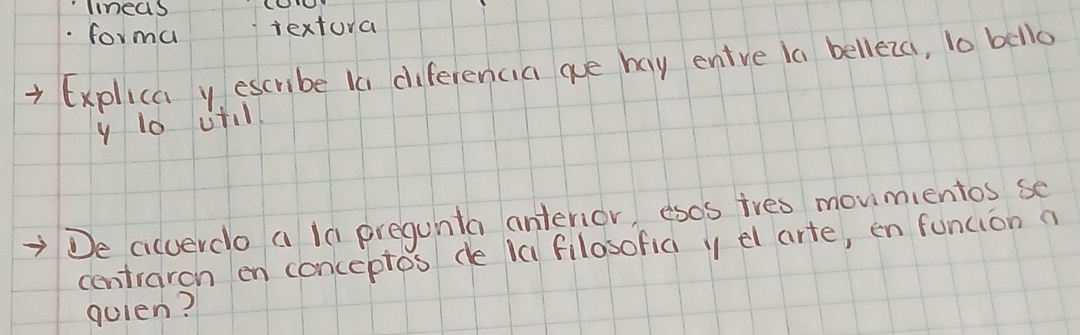 · líneas color
· forma · textura
→ Explica y escribe la diferencia que hay entre la belleza, lo bello
y lo útil.
→ De acuerdo a la pregunta anterior, esos tres movimientos se
centraron en conceptos de la filosofía y el arte, en función a
quien?